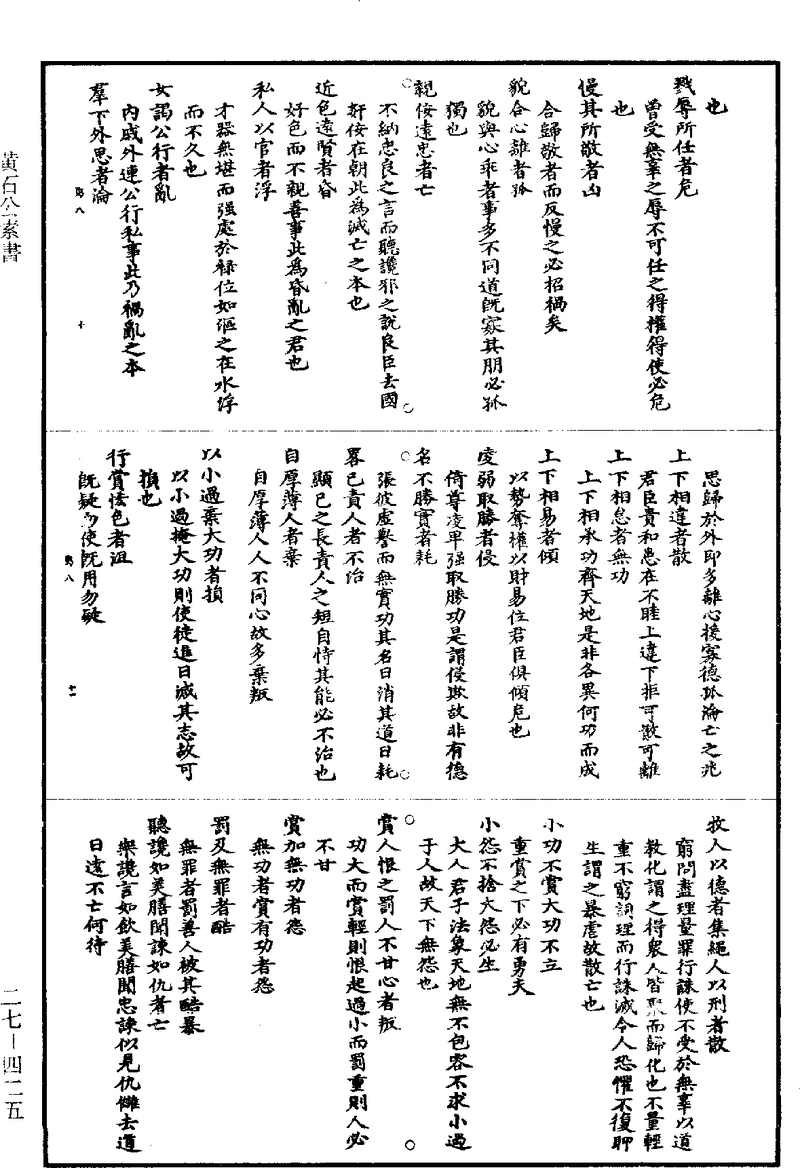 也
戮辱所任者危
曾受無辜之辱不可任之得權得使必危
也
慢其所敬者凶
合歸敬者而反慢之必招禍矣
貌合心離者孤
貌與心乖者事多不同道既寡其朋必孤
獨也
親佞遠忠者亡
不納忠良之言而聽讒邪之說良臣去國
奸佞在朝此為滅亡之本也
近色遠賢者昏
好色而不親善事此為昏亂之君也
私人以官者浮
才器無堪而强處於祿位如漚之在水浮
而不久也
女謁公行者亂
內戚外連公行私事此乃禍亂之本
羣下外思者淪
思歸於外卽多離心援寡德孤淪亡之兆
上下相違者散
君臣貴和患在不睦上違下拒可散可離
上下相怠者無功
上下相承功齊天地是非各異何功而成
上下相易者傾
以勢奪權以財易位君臣俱傾危也
凌弱取勝者侵
倚尊凌卑强取勝功是謂侵欺故非有德
名不勝實者耗
張彼虛譽而無實功其名日消其道日耗
畧己責人者不治
顯己之長責人之短自恃其能必不治也
自厚薄人者棄
自厚薄人人不同心故多棄叛
以小過棄大功者損
以小過掩大功則使徒進日減其志故可
損也
行賞恡色者沮
既疑勿使既用勿疑
牧人以德者集繩人以刑者散
窮問盡理量罪行誅使不受於無辜以道
教化謂之得衆人皆聚而歸化也不量輕
重不窮詞理而行誅滅令人恐懼不復聊
生謂之暴虐故散亡也
小功不賞大功不立
重賞之下必有勇夫
小怨不捨大怨必生
大人君子法象天地無不包容不求小過
于人故天下無怨也
賞人恨之罰人不甘心者叛
功大而賞輕則恨起過小而罰重則人必
不甘
賞加無功者怨
無功者賞有功者怨
罰及無罪者酷
無罪者罰善人被其酷暴
聽讒如美膳聞諫如仇者亡
樂讒言如飲美膳聞忠諫似見仇讎去道
日遠不亡何待
黃石公素書
二七—四二五